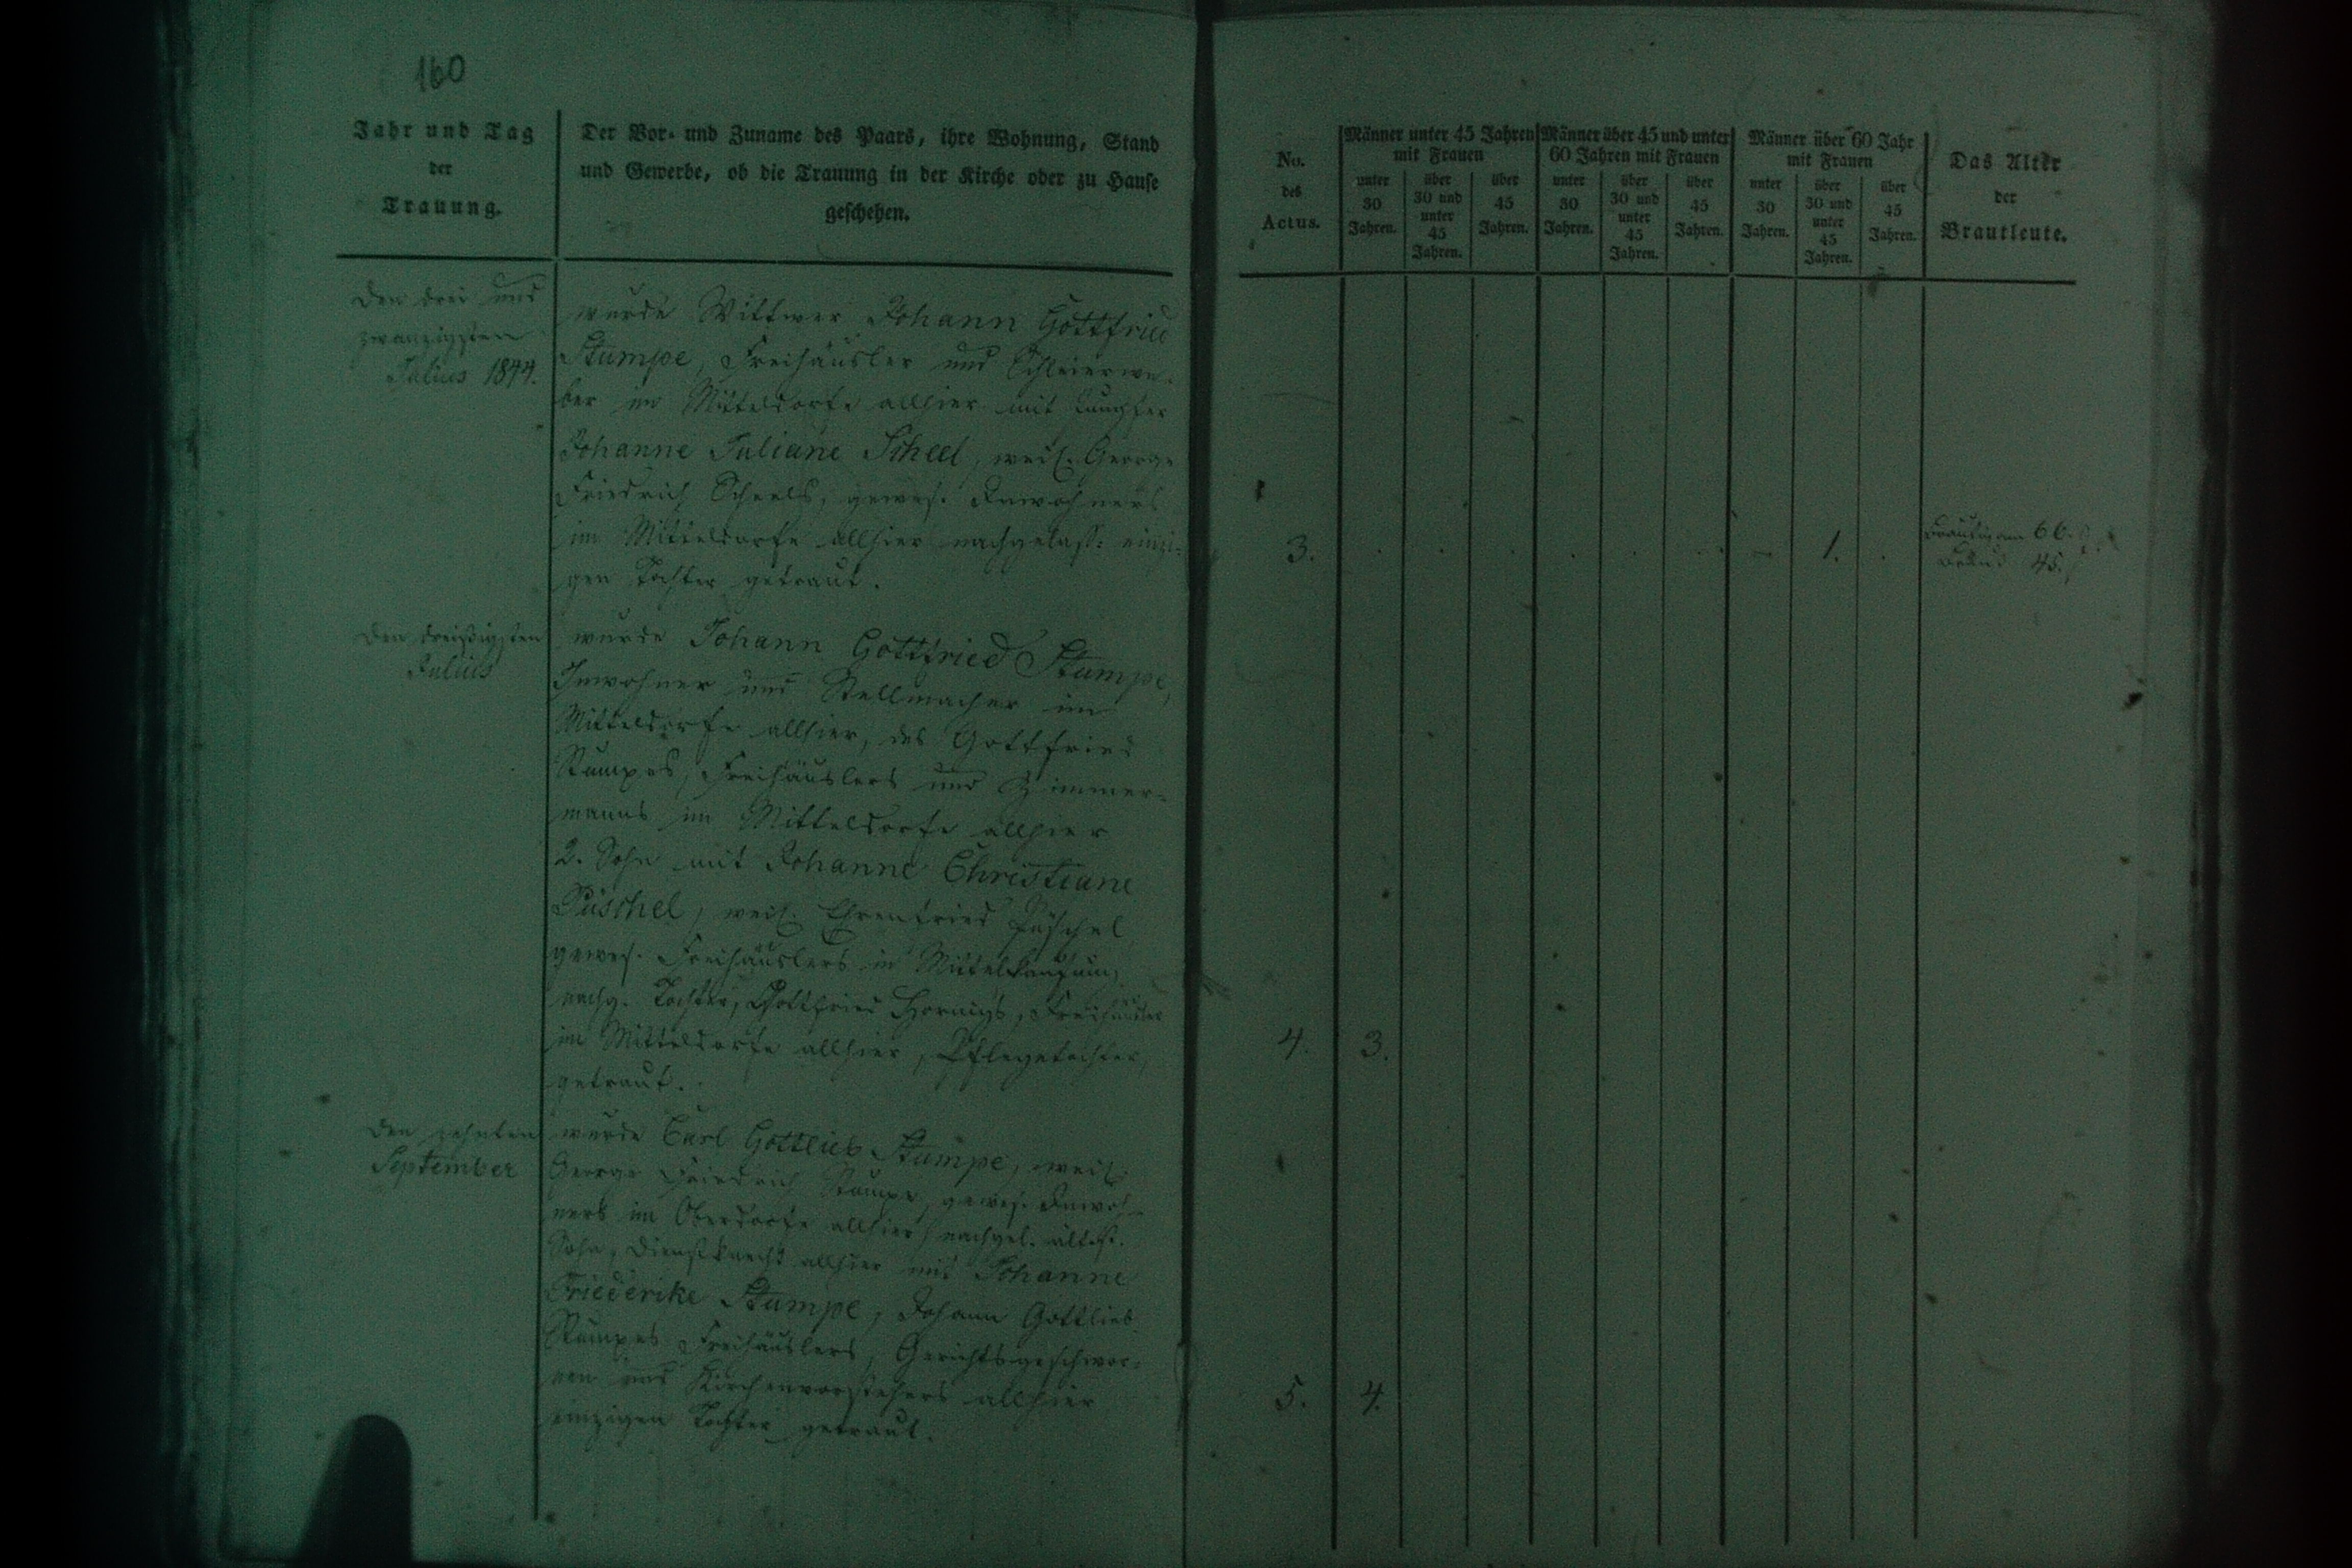 160
Jahr und Tag
der
Trauung.
Der Vor- und Zuname des Paars, ihre Wohnung, Stand
und Gewerbe, ob die Trauung in der Kirche oder zu Hause
geschehen.
No.
des
Actus.
Männer unter 45 Jahren
mit Frauen
unter
30
Jahren.
über
30 und
unter
45
Jahren.
über
45
Jahren.
Männer über 45 und unter
60 Jahren mit Frauen
unter
30
Jahren.
über
30 und
unter
45
Jahren.
über
45
Jahren.
Männer über 60 Jahr
mit Frauen
unter
30
Jahren.
über
30 und
unter
45
Jahren.
über
45
Jahren.
Das Alter
der
Brautleute.
Den drei und
zwanzigsten
Julius 1844.
wurde Wittwer Johann Gottfried
Stumpe, Freihäusler und Schleierwe-
ber im Mitteldorfe allhier mit Jungfer
Johanne Juliane Scheel, weil. George
Friedrich Scheels, gewes. Inwohners
im Mitteldorfe allhier nachgelass: einzi-
gen Tochter getraut.
3.
1.
Bräutigam 66.
Braut 45.
Den dreißigsten
Julius
wurde Johann Gottfried Stumpe,
Inwohner und Stellmacher im
Mitteldorfe allhier, des Gottfried
Stumpes, Freihäuslers und Zimmer-
manns im Mitteldorfe allhier
2. Sohn mit Johanne Christiane
Püschel, weil. Ehrenfried Püschel
gewes. Freihäuslers in Mittelkauffung
nachg. Tochter, Gottfried Hornigs, Freihäusler
im Mitteldorfe allhier, Pflegetochter,
getraut.
4.
3.
Den zehnten
September
wurde Carl Gottlieb Stumpe, weil.
George Friedrich Stumpe, gewes. Inwoh-
ners im Oberdorfe allhier nachgel. ältest.
Sohn, Dienstknecht allhier mit Johanne
Friederike Stumpe, Johann Gottlieb
Stumpes Freihäuslers, Gerichtsgeschwor-
nen und Kirchenvorstehers allhier
einzigen Tochter getraut.
5.
4.